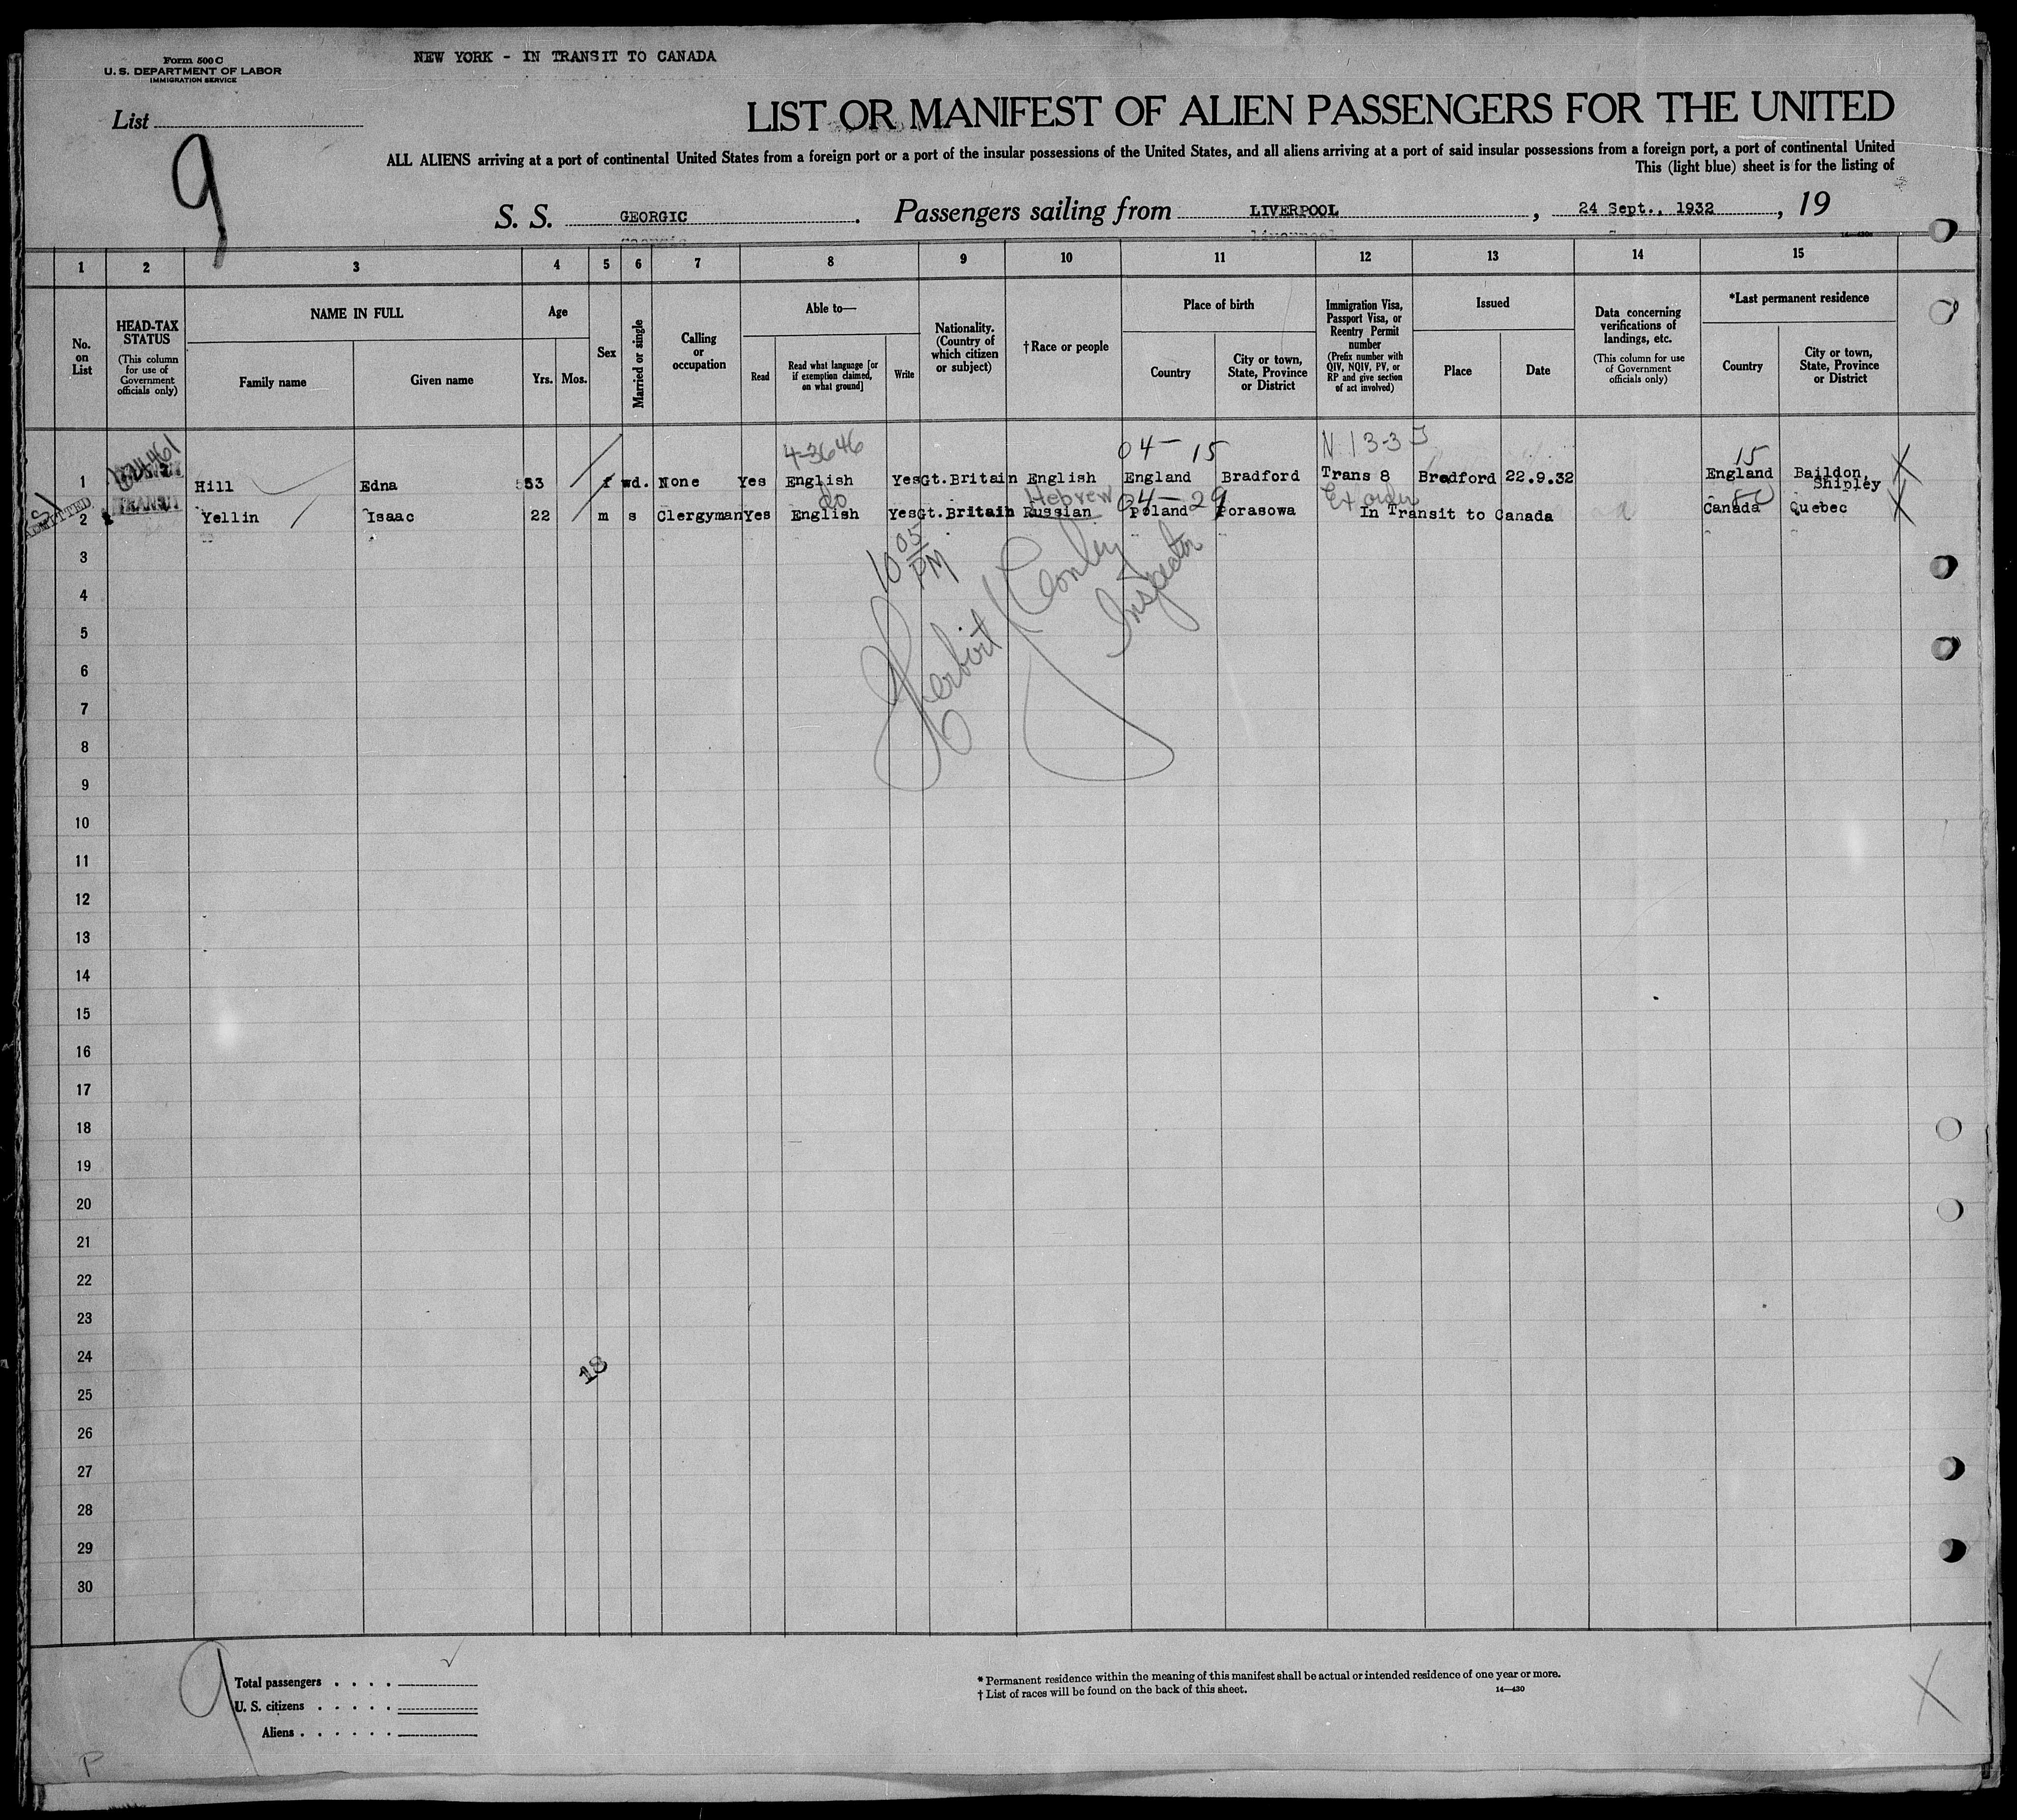 Form 500 C
U. S. DEPARTMENT OF LABOR
IMMIGRATION SERVICE
NEW YORK - IN TRANSIT TO CANADA
List
9
LIST OR MANIFEST OF ALIEN PASSENGERS FOR THE UNITED
ALL ALIENS arriving at a port of continental United States from a foreign port or a port of the insular possessions of the United States, and all aliens arriving at a port of said insular possessions from a foreign port, a port of continental United
This (light blue) sheet is for the listing of
S. S. GEORGIC. Passengers sailing from LIVERPOOL, 24 Sept., 1932, 19
1 2 3 4 5 6 7 8 9 10 11 12 13 14 15
No. on List
HEAD-TAX STATUS (This column for use of Government officials only)
NAME IN FULL
Family name
Given name
Age
Yrs. Mos.
Sex
Married or single
Calling or occupation
Able to—
Read
Read what language [or if exemption claimed, on what ground]
Write
Nationality. (Country of which citizen or subject)
†Race or people
Place of birth
Country
City or town, State, Province or District
Immigration Visa, Passport Visa, or Reentry Permit number (Prefix number with QIV, NQIV, PV, or RP and give section of act involved)
Issued
Place
Date
Data concerning verifications of landings, etc. (This column for use of Government officials only)
*Last permanent residence
Country
City or town, State, Province or District
4-3646 04- 15 N 13-3 15
1 Hill Edna 53 f wd. None Yes English Yes Gt.Britain English England Bradford Trans 8 Bradford 22.9.32 England Baildon, Shipley
TRANSIT
ADMITTED
do Hebrew 04-29 Ex order
2 Yellin Isaac 22 m s Clergyman Yes English Yes Gt.Britain Russian Poland Porasowa In Transit to Canada Canada Quebec
10 05 PM
Herbert Conley
Inspector
3
4
5
6
7
8
9
10
11
12
13
14
15
16
17
18
19
20
21
22
23
24
18
25
26
27
28
29
30
9
Total passengers . . . .
U. S. citizens . . . . .
Aliens . . . . . .
* Permanent residence within the meaning of this manifest shall be actual or intended residence of one year or more.
† List of races will be found on the back of this sheet.
14—430
X
P